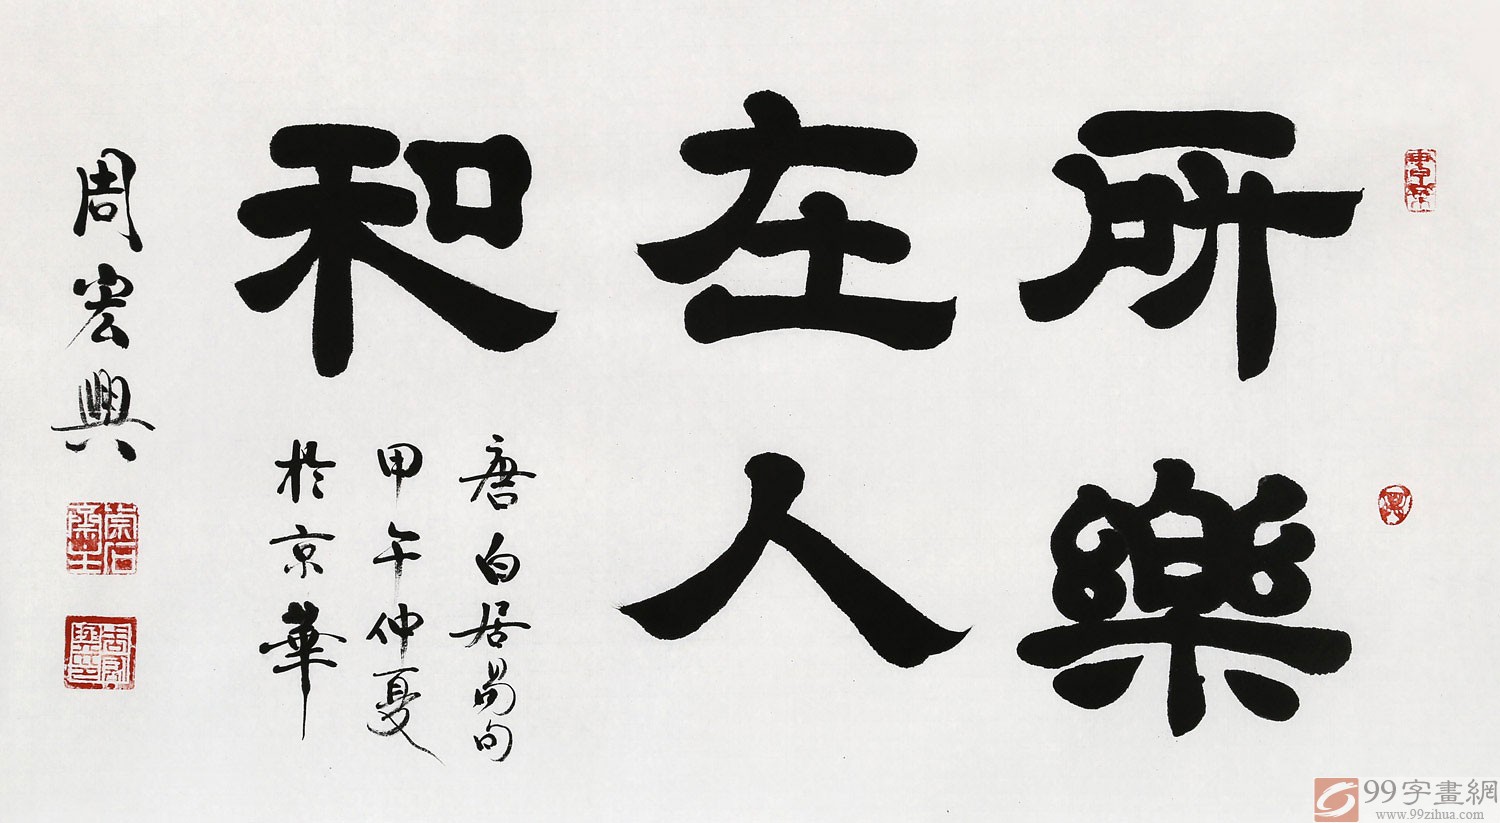 所樂
在人
和
唐白居易句
甲午仲夏
於京華
周宏興
99字畫網
www.99zihua.com